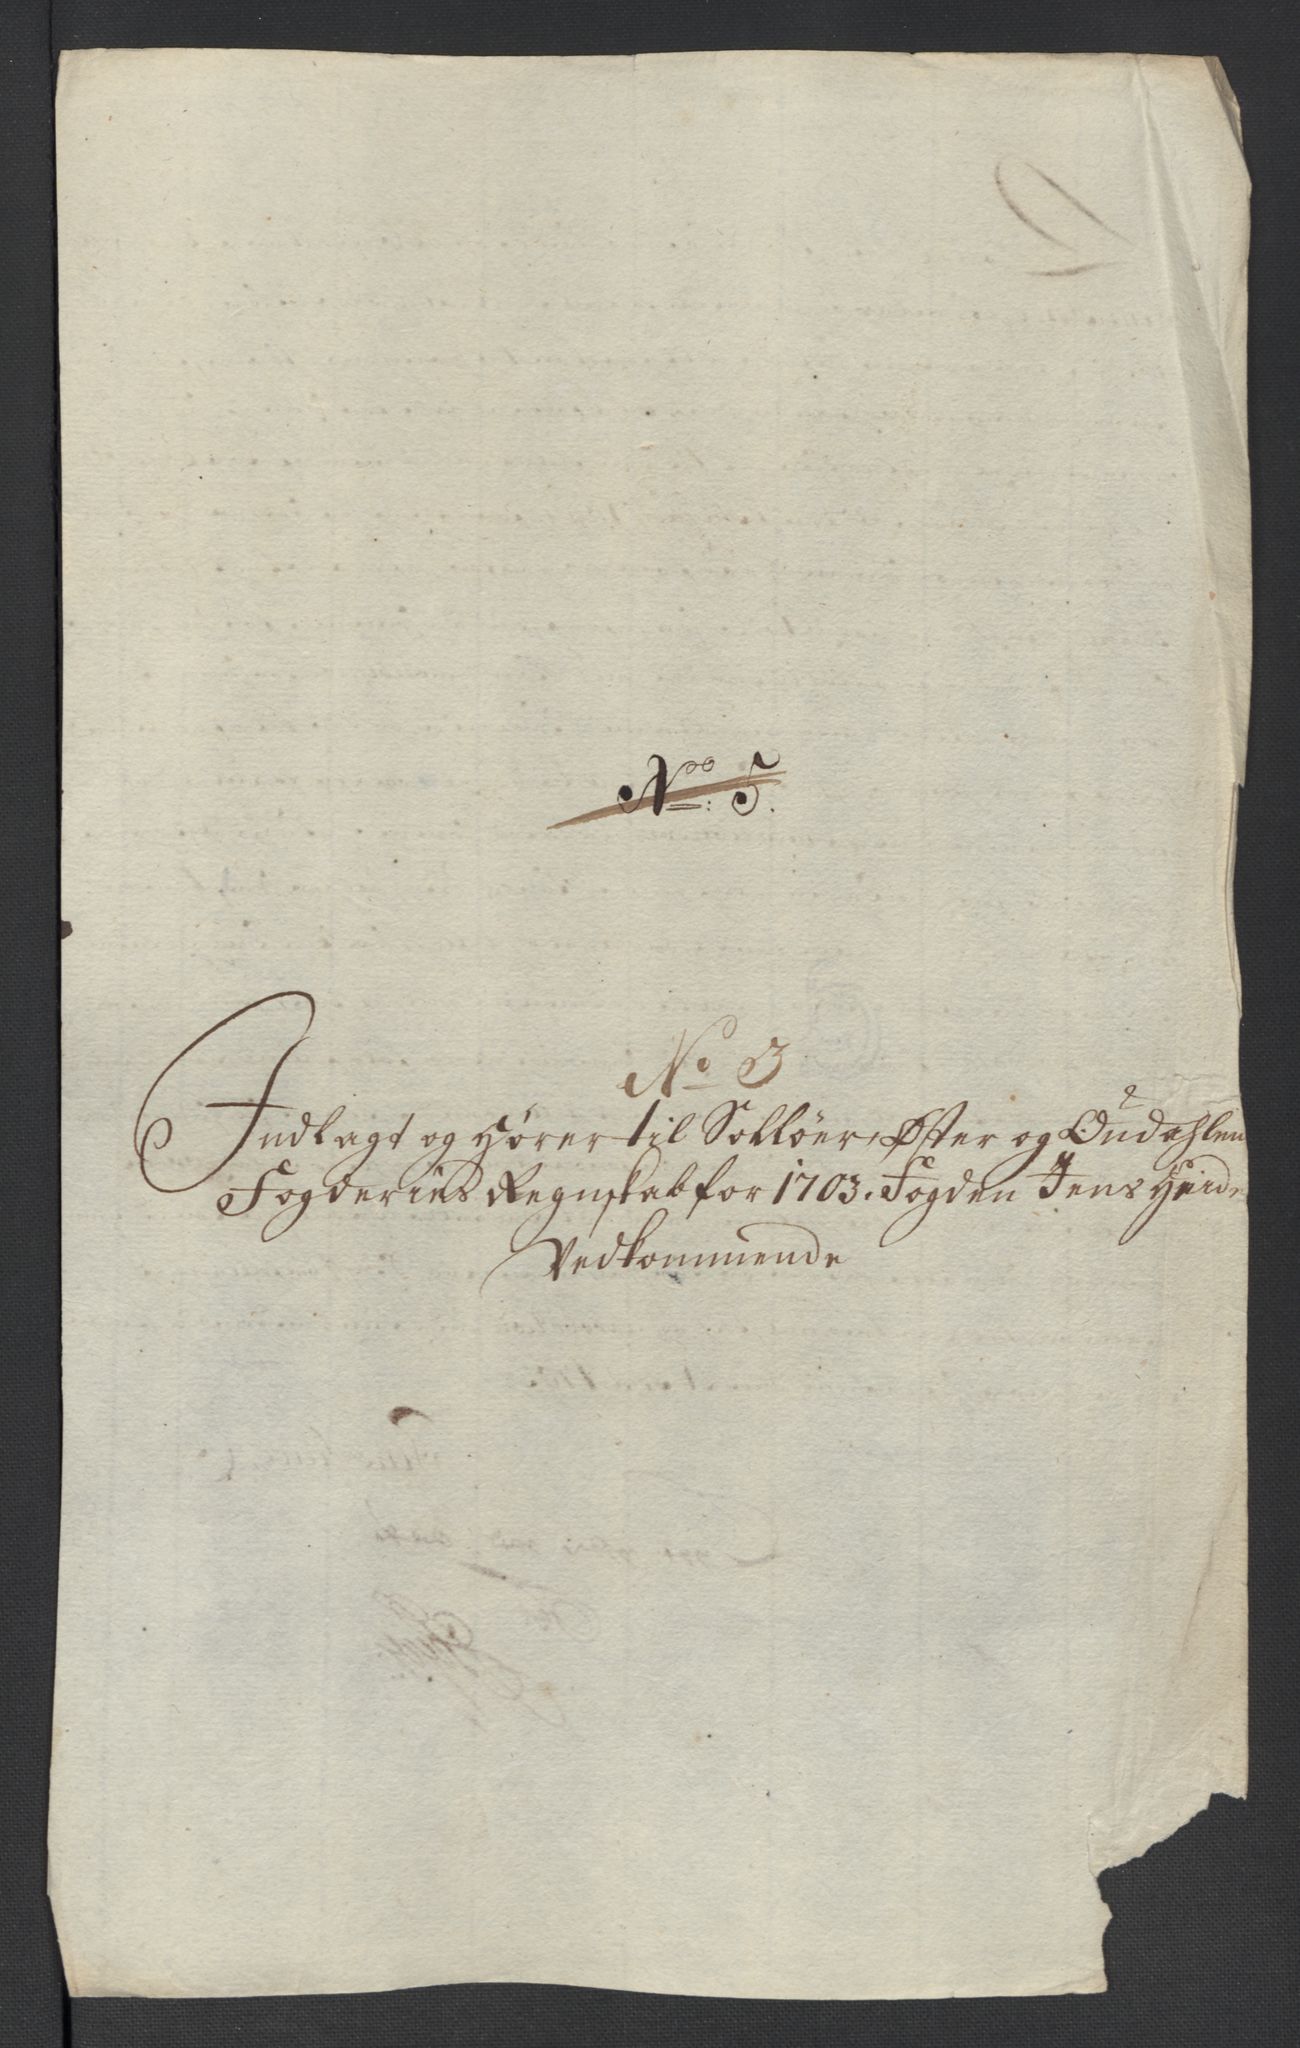 Noo: 5.
No 3
Indlagt og Hører til Solløer, Øster og Oudahlen
Fogderies Regnskab for 1703. Fogden Jens Hvide
Vedkommende